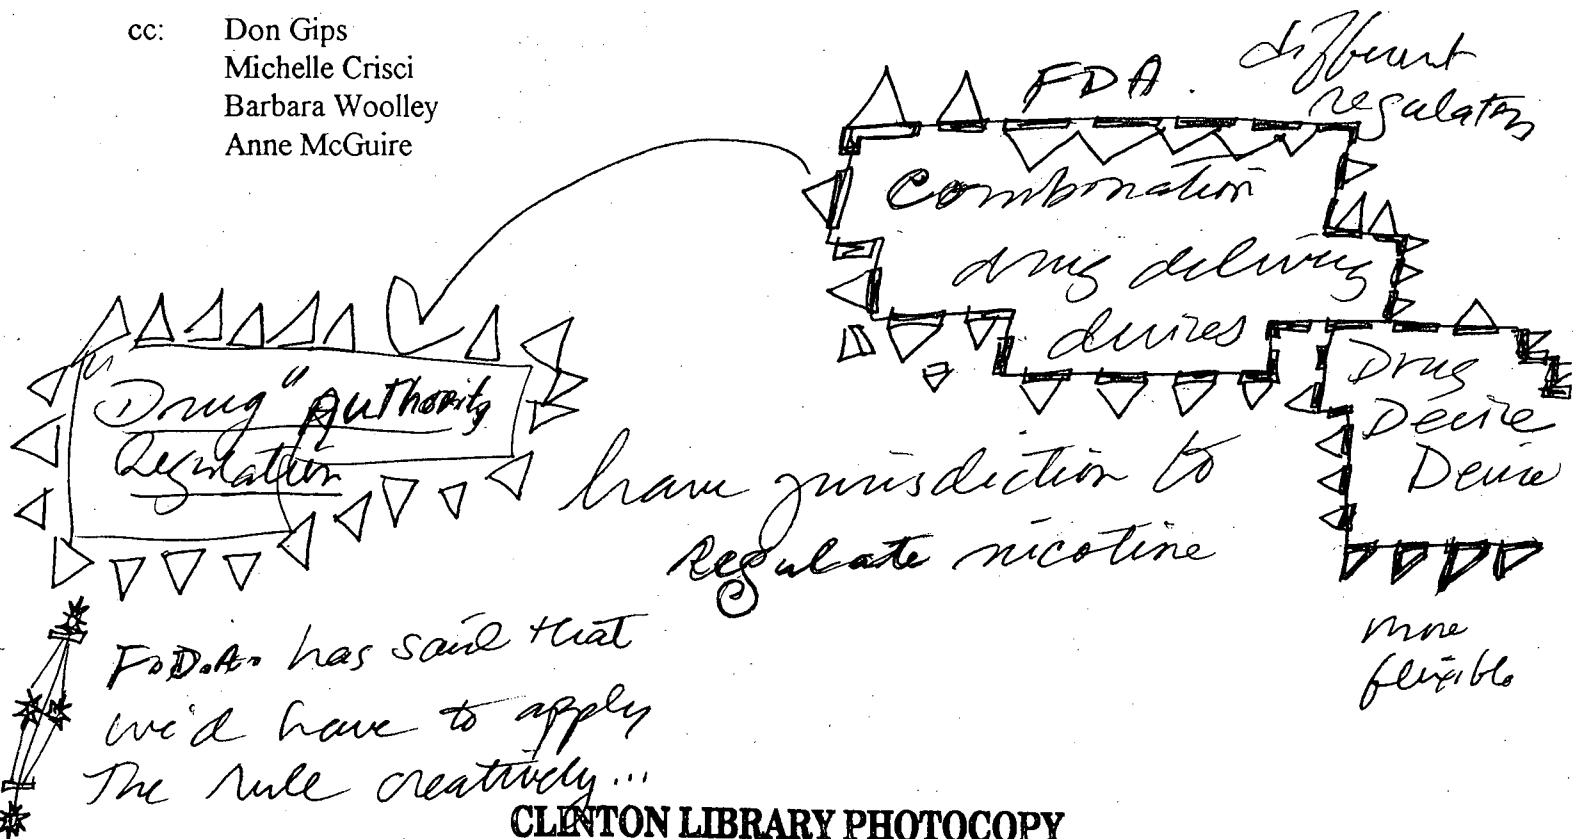 cc: Don Gips
Michelle Crisci
Barbara Woolley
Anne McGuire
FDA. different
regulators
Combonation
drug delivery
devices
Drug
Device
Device
more
flexible
"Drug" Authority
Regulation
have jurisdiction to
Regulate nicotine
F.D.A. has said that
we'd have to apply
The rule creatively...
CLINTON LIBRARY PHOTOCOPY